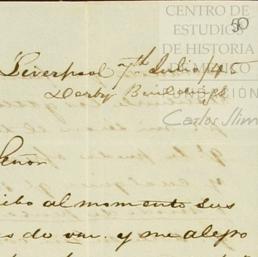 CENTRO DE
ESTUDIOS
DE HISTORIA
DE MÉXICO
Carlos Slim
50
Liverpool 7th Julio 45
Derby Buildings
Señor
al momento sus
de var. y me alegro